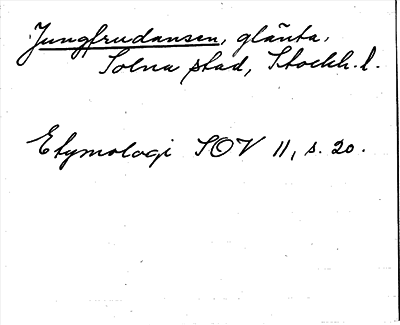 Jungfrudansen, glänta,
Solna stad, Stockh. l.
Etymologi SOV 11, s. 20.